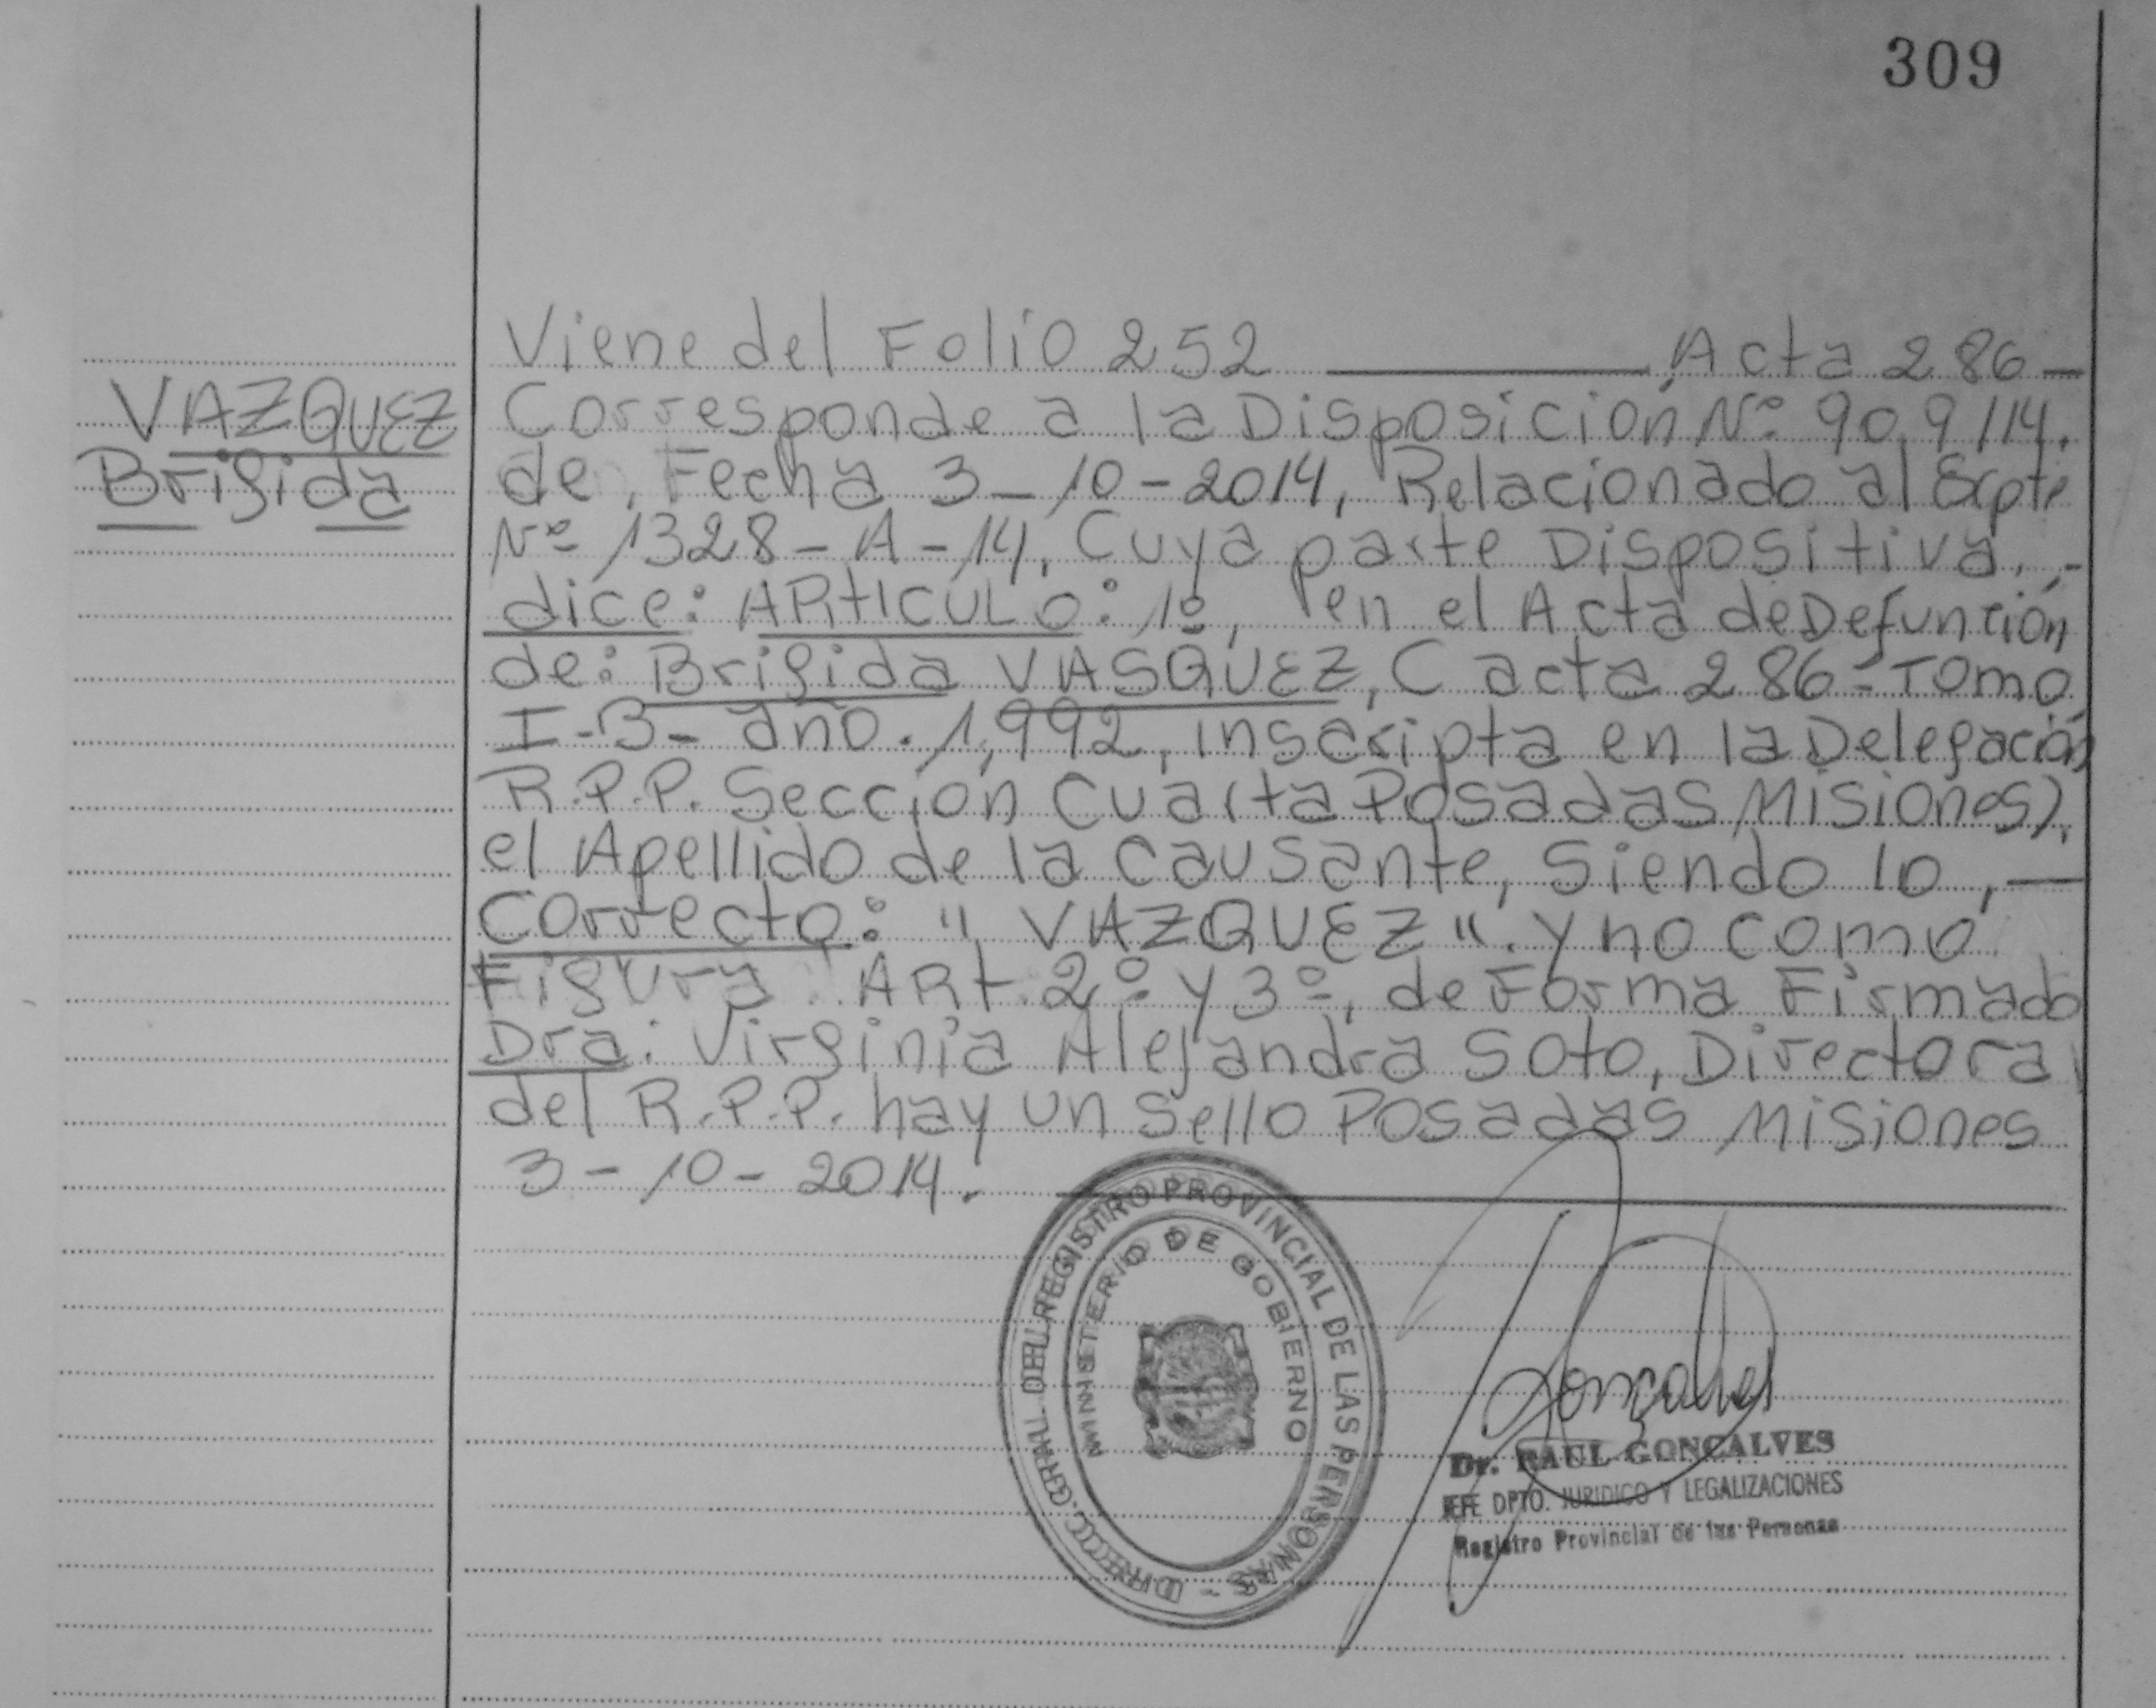 309
Viene del Folio 252 ———— Acta 286 —
VAZQUEZ
Brigida
Corresponde a la Disposición Nº 909/14.
de, Fecha 3-10-2014, Relacionado al Expte
Nº 1328-A-14, Cuya parte Dispositiva, -
dice: ARtICULO: 1º, en el Acta de Defunción
de: Brigida VASQUEZ, C acta 286- Tomo
I-B- año. 1,992, inscripta en la Delegación
R.P.P. Sección Cuarta Posadas Misiones),
el Apellido de la causante, siendo lo, —
Correcto: " VAZQUEZ ". y no como
Figura ARt 2º y 3º, de Forma Firmado
Dra: Virginia Alejandra Soto, Directora
del R.P.P. hay un Sello Posadas Misiones
3-10-2014.
DIRECC. GRAL. DEL REGISTRO PROVINCIAL DE LAS PERSONAS -
MINISTERIO DE GOBIERNO
Goncalves
Dr. RAUL GONCALVES
JEFE DPTO. JURIDICO Y LEGALIZACIONES
Registro Provincial de las Personas